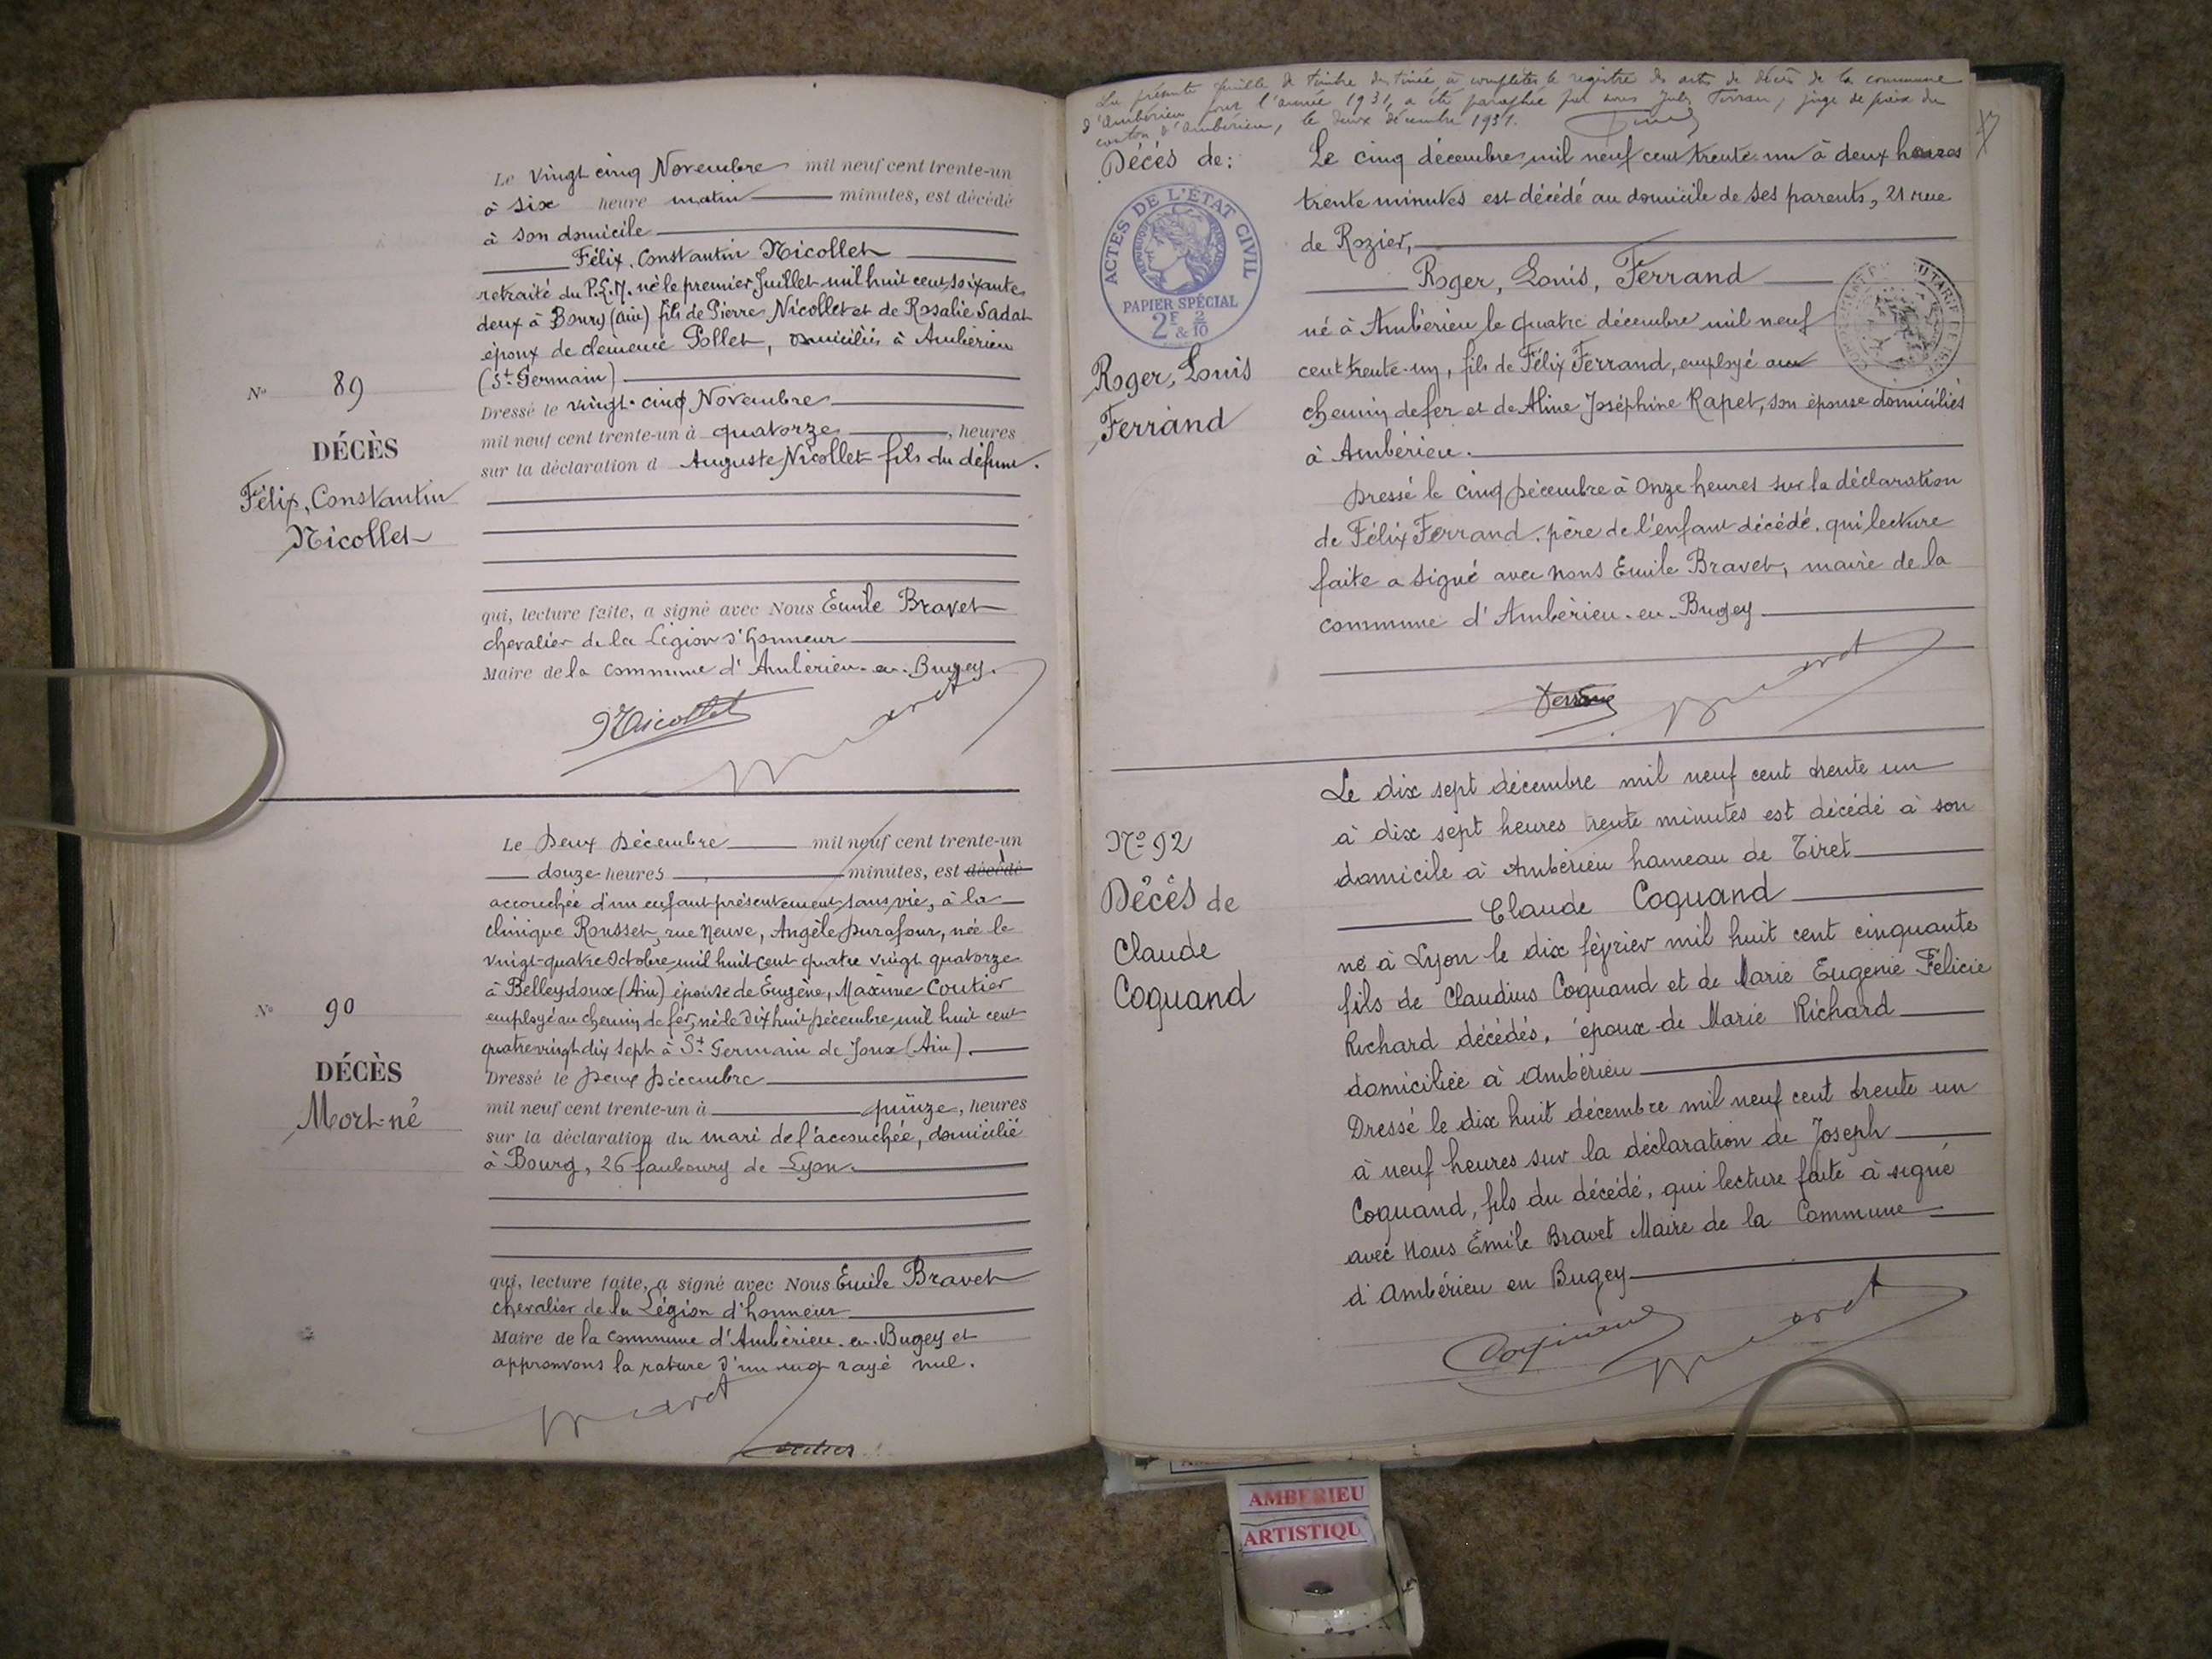 Le vingt cinq Novembre mil neuf cent trente-un
à six heure matin minutes, est décédé
à son domicile
Félix, Constantin Nicollet
retraité du P.L.M. né le premier Juillet mil huit cent soixante
deux à Bourg (Ain) fils de Pierre Nicollet et de Rosalie Sadat
époux de clémence Pollet, domiciliés à Ambérieu
(St Germain)
Dressé le vingt-cinq Novembre
mil neuf cent trente-un à quatorze, heures
sur la déclaration d Auguste Nicollet fils du défunt.
qui, lecture faite, a signé avec Nous Emile Bravet
chevalier de la Légion d'honneur
Maire de la commune d'Ambérieu-en-Bugey.
Nicollet
Bravet
No 89
DÉCÈS
Félix, Constantin
Nicollet
Le Deux Décembre mil neuf cent trente-un
douze heures minutes, est décédé
accouchée d'un enfant présentement sans vie, à la
clinique Rousset, rue Neuve, Angèle Durafour, née le
vingt-quatre Octobre mil huit cent quatre vingt quatorze
à Belleydoux (Ain) épouse de Eugène, Maxime Coutier
employé au chemin de fer, né le Dix huit Décembre mil huit cent
quatre vingt dix sept à St Germain de Joux (Ain).
Dressé le Deux Décembre
mil neuf cent trente-un à quinze, heures
sur la déclaration du mari de l'accouchée, domicilié
à Bourg, 26 faubourg de Lyon.
qui, lecture faite, a signé avec Nous Emile Bravet
chevalier de la Légion d'honneur
Maire de la commune d'Ambérieu-en-Bugey et
approuvons la rature d'un mot rayé nul.
Bravet
Coutier
No 90
DÉCÈS
Mort-né
La présente feuille de timbre destinée à compléter le registre des actes de décès de la commune
d'Ambérieu pour l'année 1931, a été paraphée par nous juge de paix du
canton d'Ambérieu, le deux décembre 1931.
Décès de:
ACTES DE L'ÉTAT CIVIL
RÉPUBLIQUE FRANÇAISE
PAPIER SPÉCIAL
2F & 2/10
Roger, Louis
Ferrand
Le cinq décembre mil neuf cent trente-un à deux heures
trente minutes est décédé au domicile de ses parents, 21 rue
de Rozier,
Roger, Louis, Ferrand
né à Ambérieu le quatre décembre mil neuf
cent trente-un, fils de Félix Ferrand, employé au
chemin de fer et de Aline Joséphine Rapet, son épouse domiciliés
à Ambérieu.
Dressé le cinq Décembre à Onze heures sur la déclaration
de Félix Ferrand, père de l'enfant décédé, qui lecture
faite a signé avec nous Emile Bravet, maire de la
commune d'Ambérieu-en-Bugey
Ferrand
Bravet
No 92
Décès de
Claude
Coquand
Le dix sept décembre mil neuf cent trente un
à dix sept heures trente minutes est décédé à son
domicile à Ambérieu hameau de Tiret
Claude Coquand
né à Lyon le dix février mil huit cent cinquante
fils de Claudius Coquand et de Marie Eugenie Félicie
Richard décédés, époux de Marie Richard
domiciliée à Ambérieu
Dressé le dix huit décembre mil neuf cent trente un
à neuf heures sur la déclaration de Joseph
Coquand, fils du décédé, qui lecture faite à signé
avec Nous Émile Bravet Maire de la Commune
d'Ambérieu en Bugey
Coquand
Bravet
AMBERIEU
ARTISTIQU